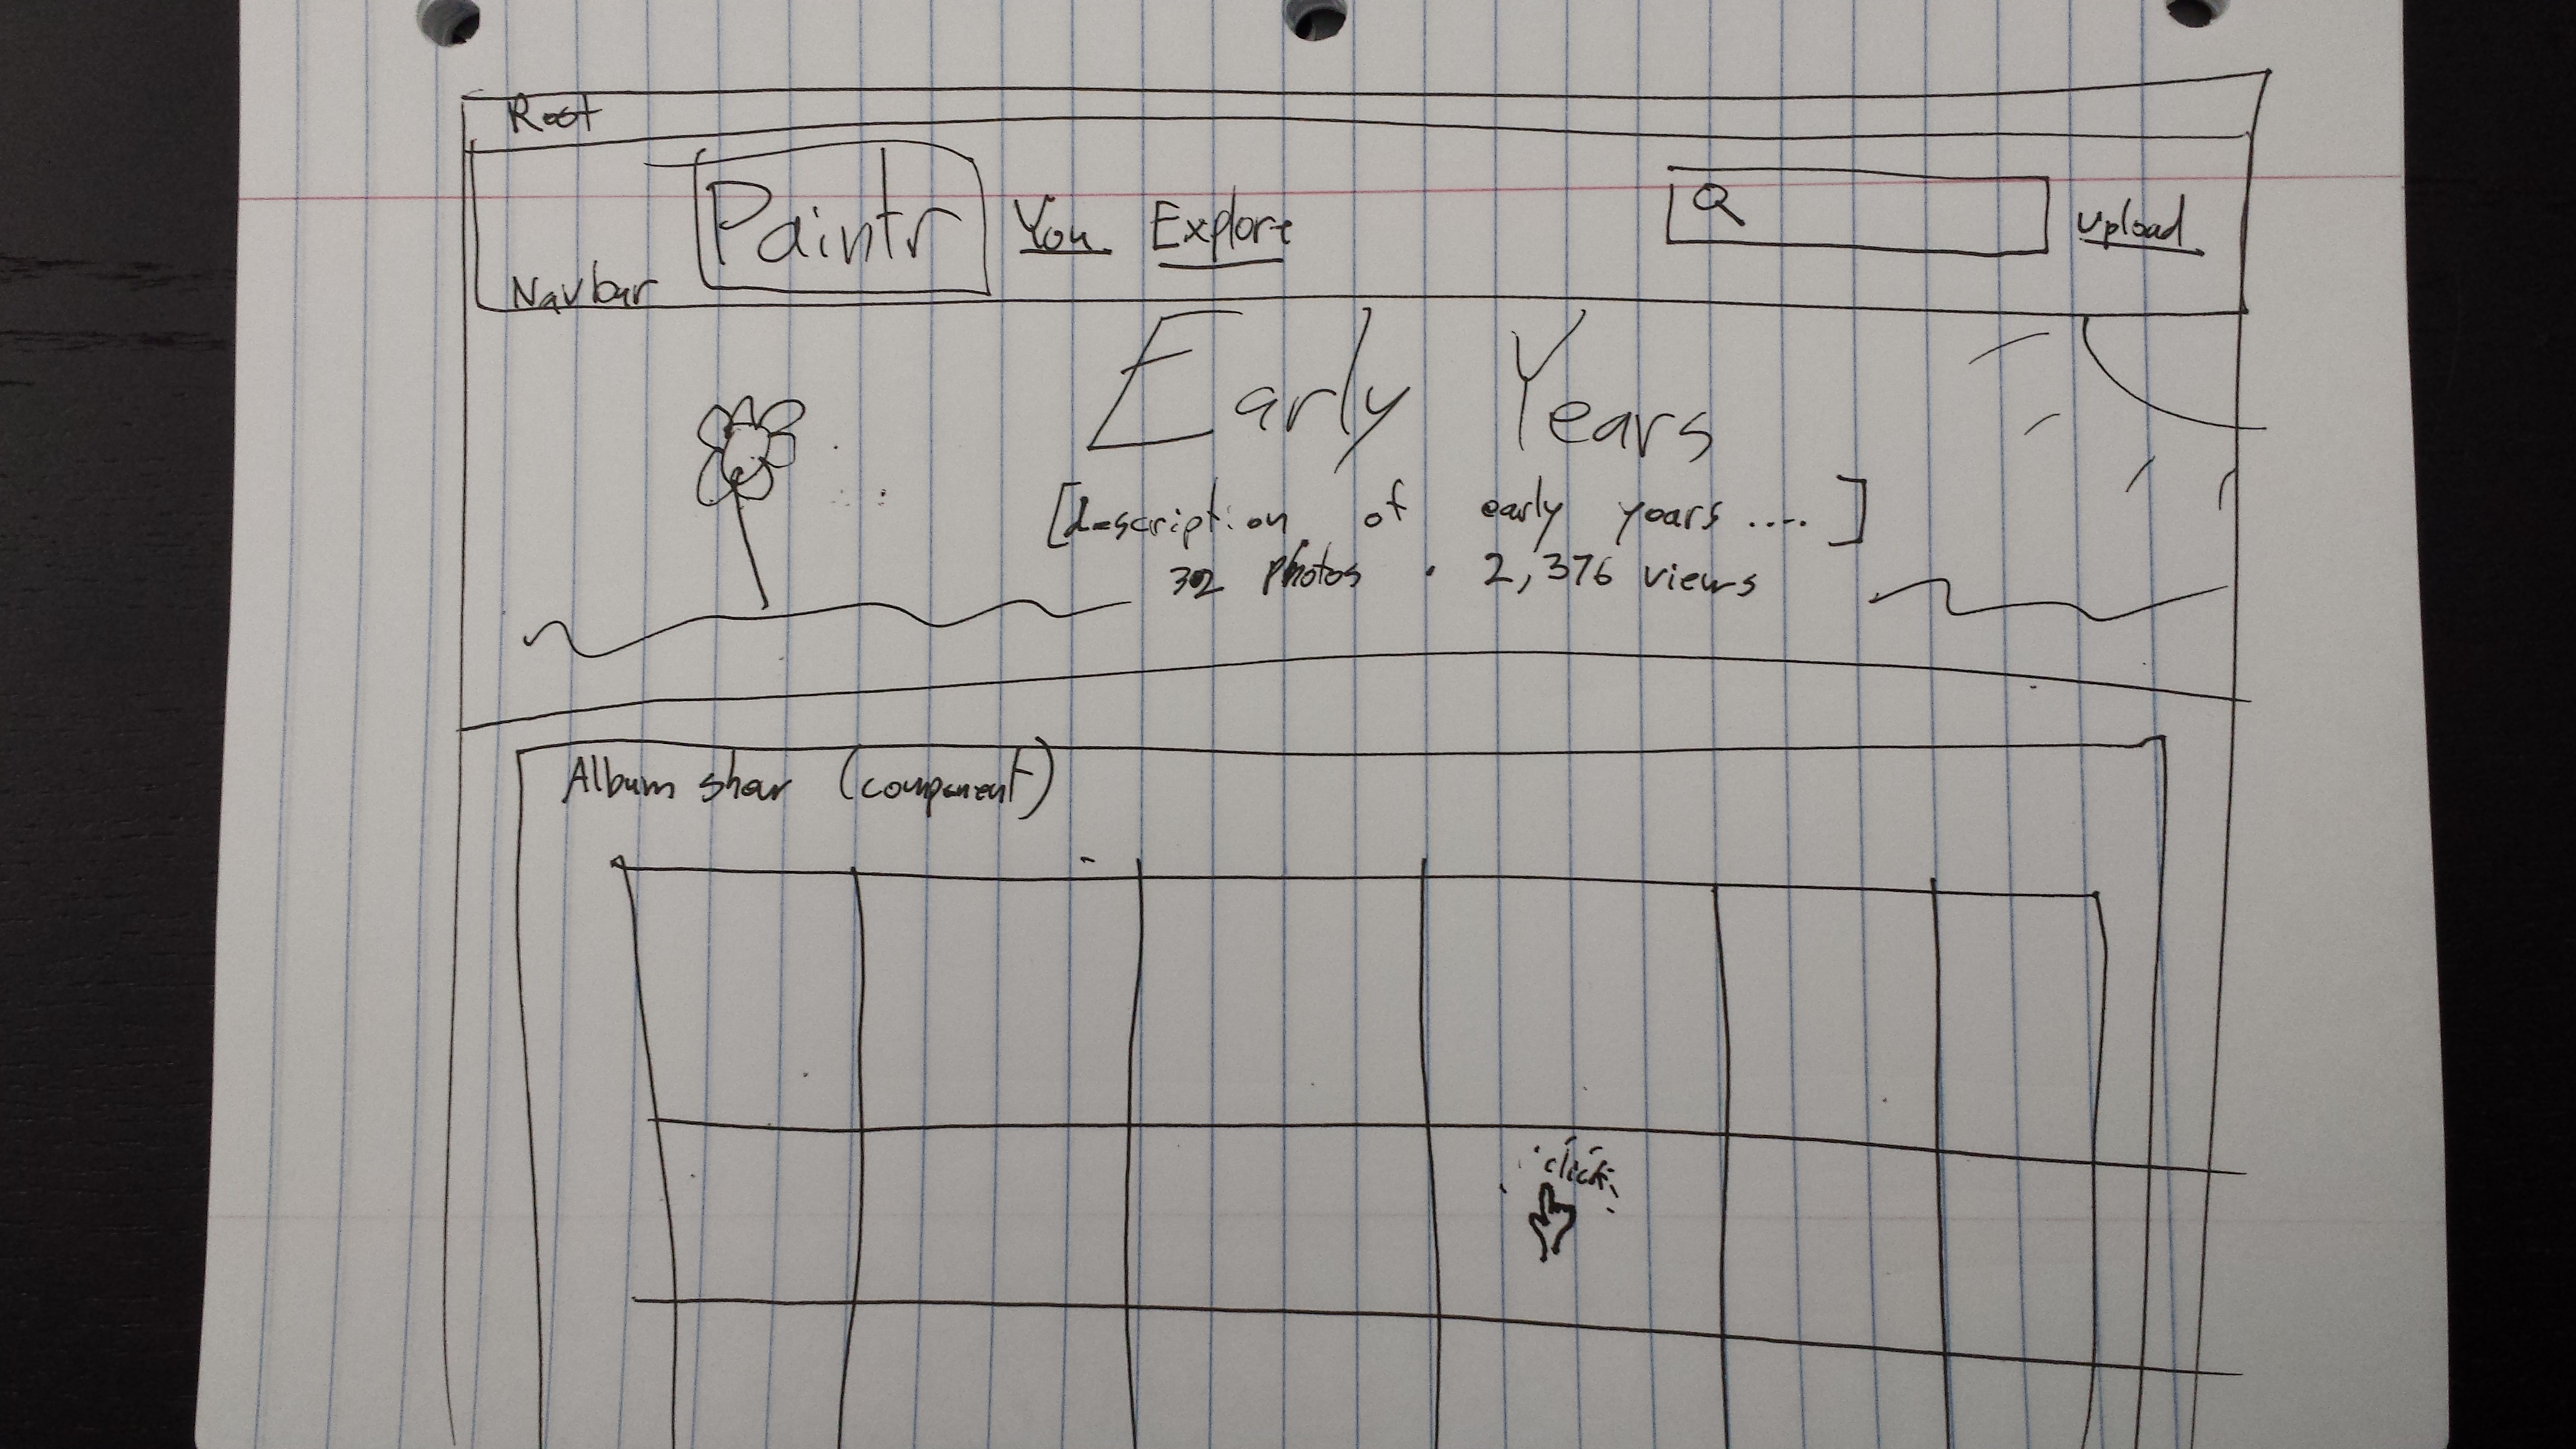 Root
Navbar
Paintr You Explore
Upload
Early Years
[description of early years ....]
32 photos · 2,376 views
Album show (component)
click